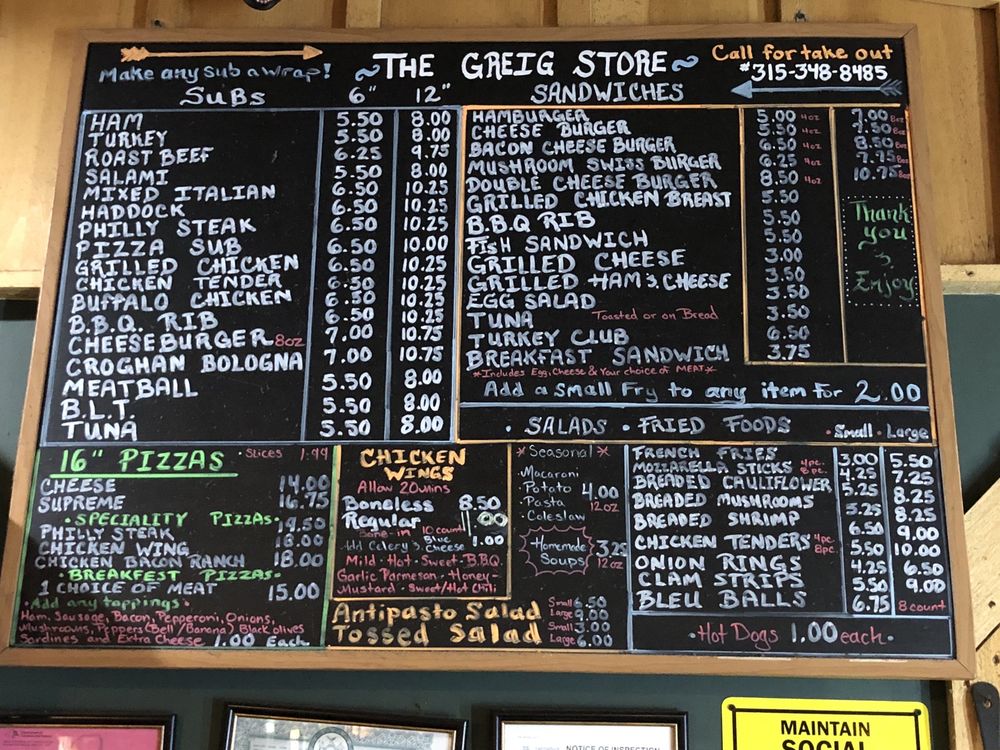 Make any sub a wrap!
~THE GREIG STORE~
Call for take out
#315-348-8485
SUBS 6" 12"
HAM 5.50 8.00
TURKEY 5.50 8.00
ROAST BEEF 6.25 9.75
SALAMI 5.50 8.00
MIXED ITALIAN 6.50 10.25
HADDOCK 6.50 10.25
PHILLY STEAK 6.50 10.25
PIZZA SUB 6.50 10.00
GRILLED CHICKEN 6.50 10.25
CHICKEN TENDER 6.50 10.25
BUFFALO CHICKEN 6.50 10.25
B.B.Q. RIB 6.50 10.25
CHEESEBURGER 8oz 7.00 10.75
CROGHAN BOLOGNA 7.00 10.75
MEATBALL 5.50 8.00
B.L.T. 5.50 8.00
TUNA 5.50 8.00
SANDWICHES
HAMBURGER 5.00 4oz 7.00 8oz
CHEESE BURGER 5.50 4oz 7.50 8oz
BACON CHEESE BURGER 6.50 4oz 8.50 8oz
MUSHROOM SWISS BURGER 6.25 4oz 7.75 8oz
DOUBLE CHEESE BURGER 8.50 4oz 10.75 8oz
GRILLED CHICKEN BREAST 5.50
B.B.Q RIB 5.50
FISH SANDWICH 5.50
GRILLED CHEESE 3.00
GRILLED HAM & CHEESE 3.50
EGG SALAD 3.50
TUNA Toasted or on Bread 3.50
TURKEY CLUB 6.50
BREAKFAST SANDWICH 3.75
*Includes Egg, Cheese & Your choice of MEAT*
Thank
you
&
Enjoy
Add a Small Fry to any item for 2.00
• SALADS • FRIED FOODS • Small • Large
16" PIZZAS • Slices 1.99
CHEESE 14.00
SUPREME 16.75
• SPECIALITY PIZZAS •
PHILLY STEAK 19.50
CHICKEN WING 18.00
CHICKEN BACON RANCH 18.00
• BREAKFEST PIZZAS •
1 CHOICE OF MEAT 15.00
• Add any toppings •
Ham, Sausage, Bacon, Pepperoni, Onions,
Mushrooms, Peppers (Bell / Banana) Black olives
Sardines and Extra cheese 1.00 Each
CHICKEN
WINGS
Allow 20mins
Boneless 8.50
Regular 11.00
Bone-in 10 count
Add Celery & Blue cheese 1.00
Mild • Hot • Sweet • B.B.Q.
Garlic Parmesan • Honey-
Mustard • Sweet/Hot Chili
* Seasonal *
• Macaroni
• Potato 4.00
• Pasta 12oz
• Coleslaw
Homemade 3.25
Soups 12oz
Antipasto Salad Small 6.50
Large 9.00
Tossed Salad Small 3.00
Large 6.00
FRENCH FRIES 3.00 5.50
MOZZARELLA STICKS 4pc. 8pc. 4.25 7.25
BREADED CAULIFLOWER 5.25 8.25
BREADED MUSHROOMS 5.25 8.25
BREADED SHRIMP 6.50 9.00
CHICKEN TENDERS 4pc. 8pc. 5.50 10.00
ONION RINGS 4.25 6.50
CLAM STRIPS 5.50 9.00
BLEU BALLS 6.75 8 count
• Hot Dogs 1.00 each •
NOTICE OF INSPECTION
MAINTAIN
SOCIAL